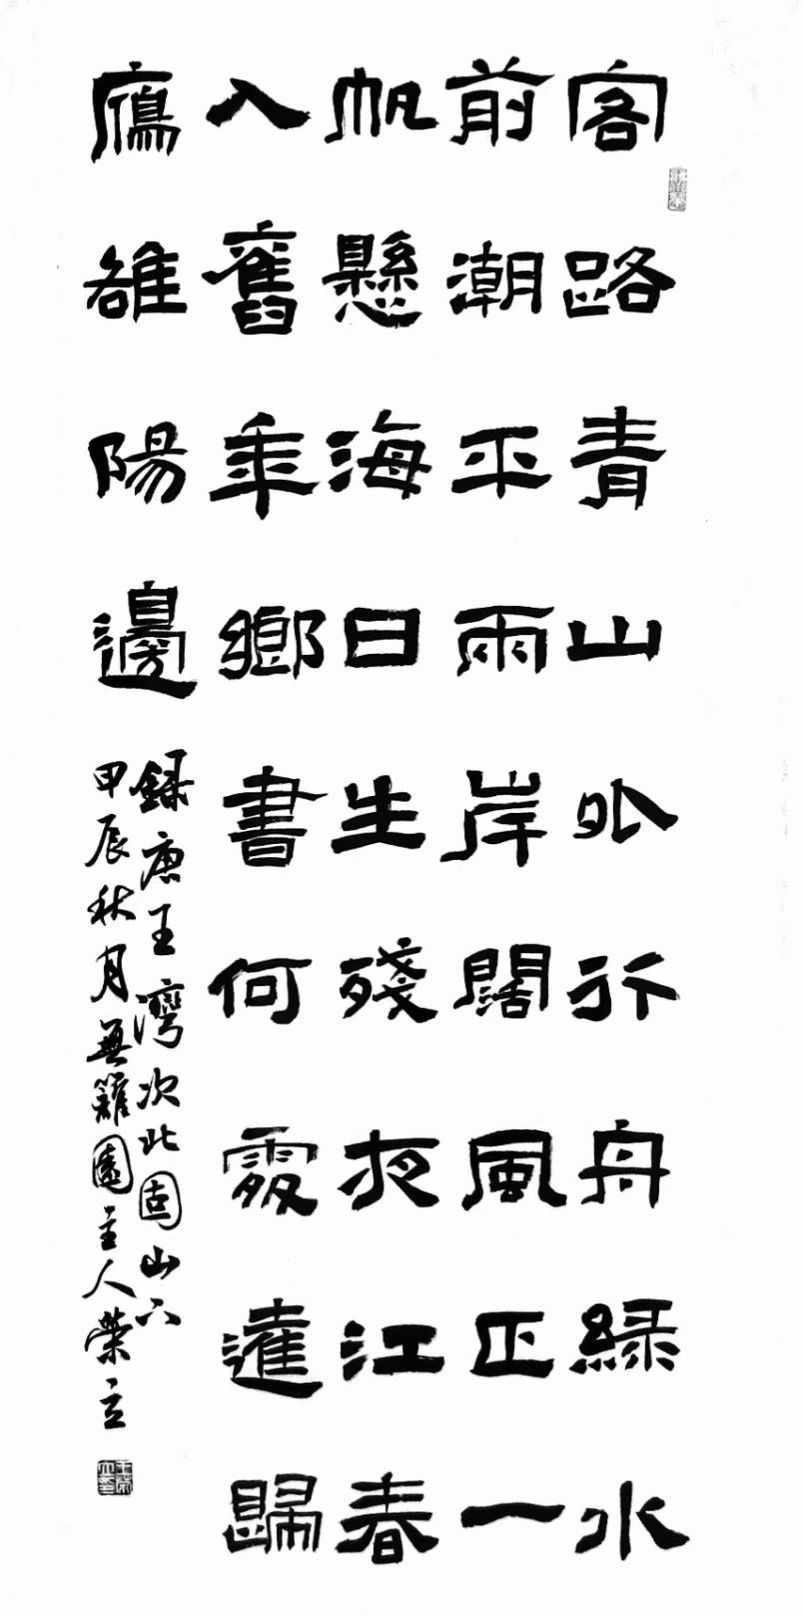 客路青山外行舟綠水
前潮平兩岸闊風正一
帆懸海日生殘夜江春
入舊年鄉書何處達歸
鴈雒陽邊
錄唐王灣次北固山下
甲辰秋月無籬園主人榮立